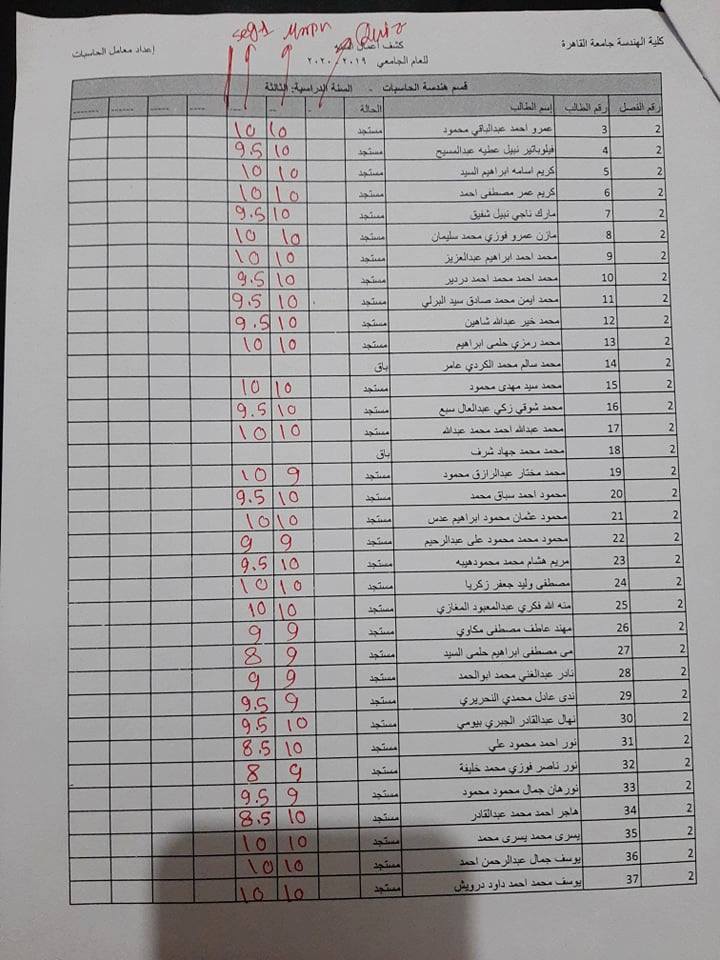 كلية الهندسة جامعة القاهرة
كشف أعمال السنة
إعداد معامل الحاسبات
للعام الجامعي ٢٠١٩ ٢٠٢٠
Quiz
قسم هندسة الحاسبات - السنة الدراسية: الثالثة
رقم الفصل رقم الطالب إسم الطالب الحالة
2 3 عمرو احمد عبدالباقي محمود مستجد 10 10
2 4 فيلوباتير نبيل عطيه عبدالمسيح مستجد 10 9.5
2 5 كريم اسامه ابراهيم السيد مستجد 10 10
2 6 كريم عمر مصطفى احمد مستجد 10 10
2 7 مارك ناجي نبيل شفيق مستجد 10 9.5
2 8 مازن عمرو فوزي محمد سليمان مستجد 10 10
2 9 محمد احمد ابراهيم عبدالعزيز مستجد 10 10
2 10 محمد احمد محمد احمد دردير مستجد 10 9.5
2 11 محمد ايمن محمد صادق سيد البرلي مستجد 10 9.5
2 12 محمد خير عبدالله شاهين مستجد 10 9.5
2 13 محمد رمزي حلمى ابراهيم مستجد 10 10
2 14 محمد سالم محمد الكردي عامر باق
2 15 محمد سيد مهدى محمود مستجد 10 10
2 16 محمد شوقي زكي عبدالعال سبع مستجد 10 9.5
2 17 محمد عبدالله احمد محمد عبدالله مستجد 10 10
2 18 محمد محمد جهاد شرف باق
2 19 محمد مختار عبدالرازق محمود مستجد 9 10
2 20 محمود احمد سباق محمد مستجد 10 9.5
2 21 محمود عثمان محمود ابراهيم عدس مستجد 10 10
2 22 محمود محمد محمود على عبدالرحيم مستجد 9 9
2 23 مريم هشام محمد محمودهيبه مستجد 10 9.5
2 24 مصطفى وليد جعفر زكريا مستجد 10 10
2 25 منه الله فكري عبدالمعبود المغازي مستجد 10 10
2 26 مهند عاطف مصطفى مكاوي مستجد 9 9
2 27 مى مصطفى ابراهيم حلمى السيد مستجد 9 8
2 28 نادر عبدالغني محمد ابوالحمد مستجد 9 9
2 29 ندى عادل محمدي النحريري مستجد 9 9.5
2 30 نهال عبدالقادر الجبري بيومي مستجد 10 9.5
2 31 نور احمد محمود علي مستجد 10 8.5
2 32 نور ناصر فوزي محمد خليفة مستجد 9 8
2 33 نورهان جمال محمود محمود مستجد 9 9.5
2 34 هاجر احمد محمد عبدالقادر مستجد 10 8.5
2 35 يسرى محمد يسرى محمد مستجد 10 10
2 36 يوسف جمال عبدالرحمن احمد مستجد 10 10
2 37 يوسف محمد احمد داود درويش مستجد 10 10